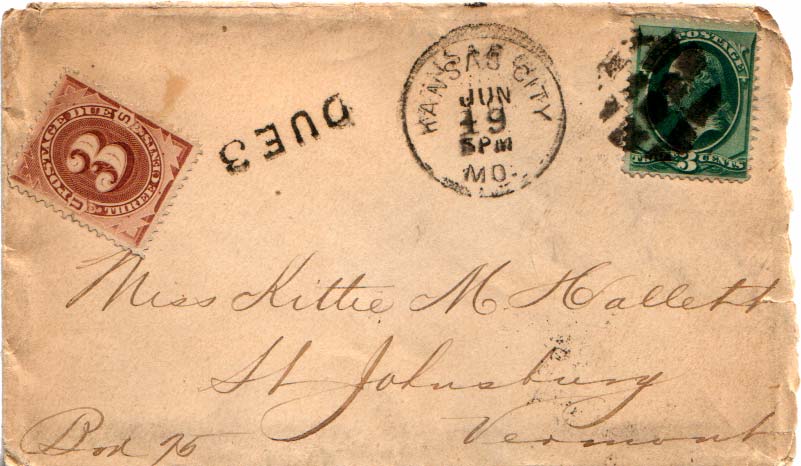 POSTAGE DUE
3
THREE CENTS
U S
DUE 3
KANSAS CITY
JUN
19
5PM
MO.
POSTAGE
THREE 3 CENTS
Miss Kittie M. Hallett
St Johnsbury
Vermont
Box 75